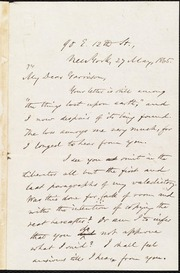 90 E. 12th St.,
New York, 27 May, 1865.
My Dear Garrison,
Your letter is still among
"the things lost upon earth," and
I now despair of its being found.
The loss annoys me very much, for
I longed to hear from you.
I see you omit in the
Liberator all but the first and
last paragraphs of my valedictory.
Was this done for lack of room and
with the intention of copying the
rest hereafter? Or am I to infer
that you do not approve
what I said? I shall feel
anxious till I hear from you.